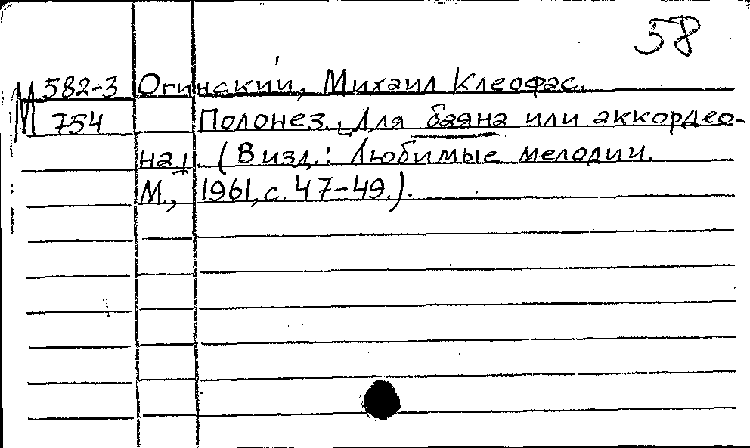 58
М 582-3 Огинский, Михаил Клеофас.
754 Полонез. [Для баяна или аккордео-
на]. (В изд.: Любимые мелодии.
М., 1961, с. 47-49.).